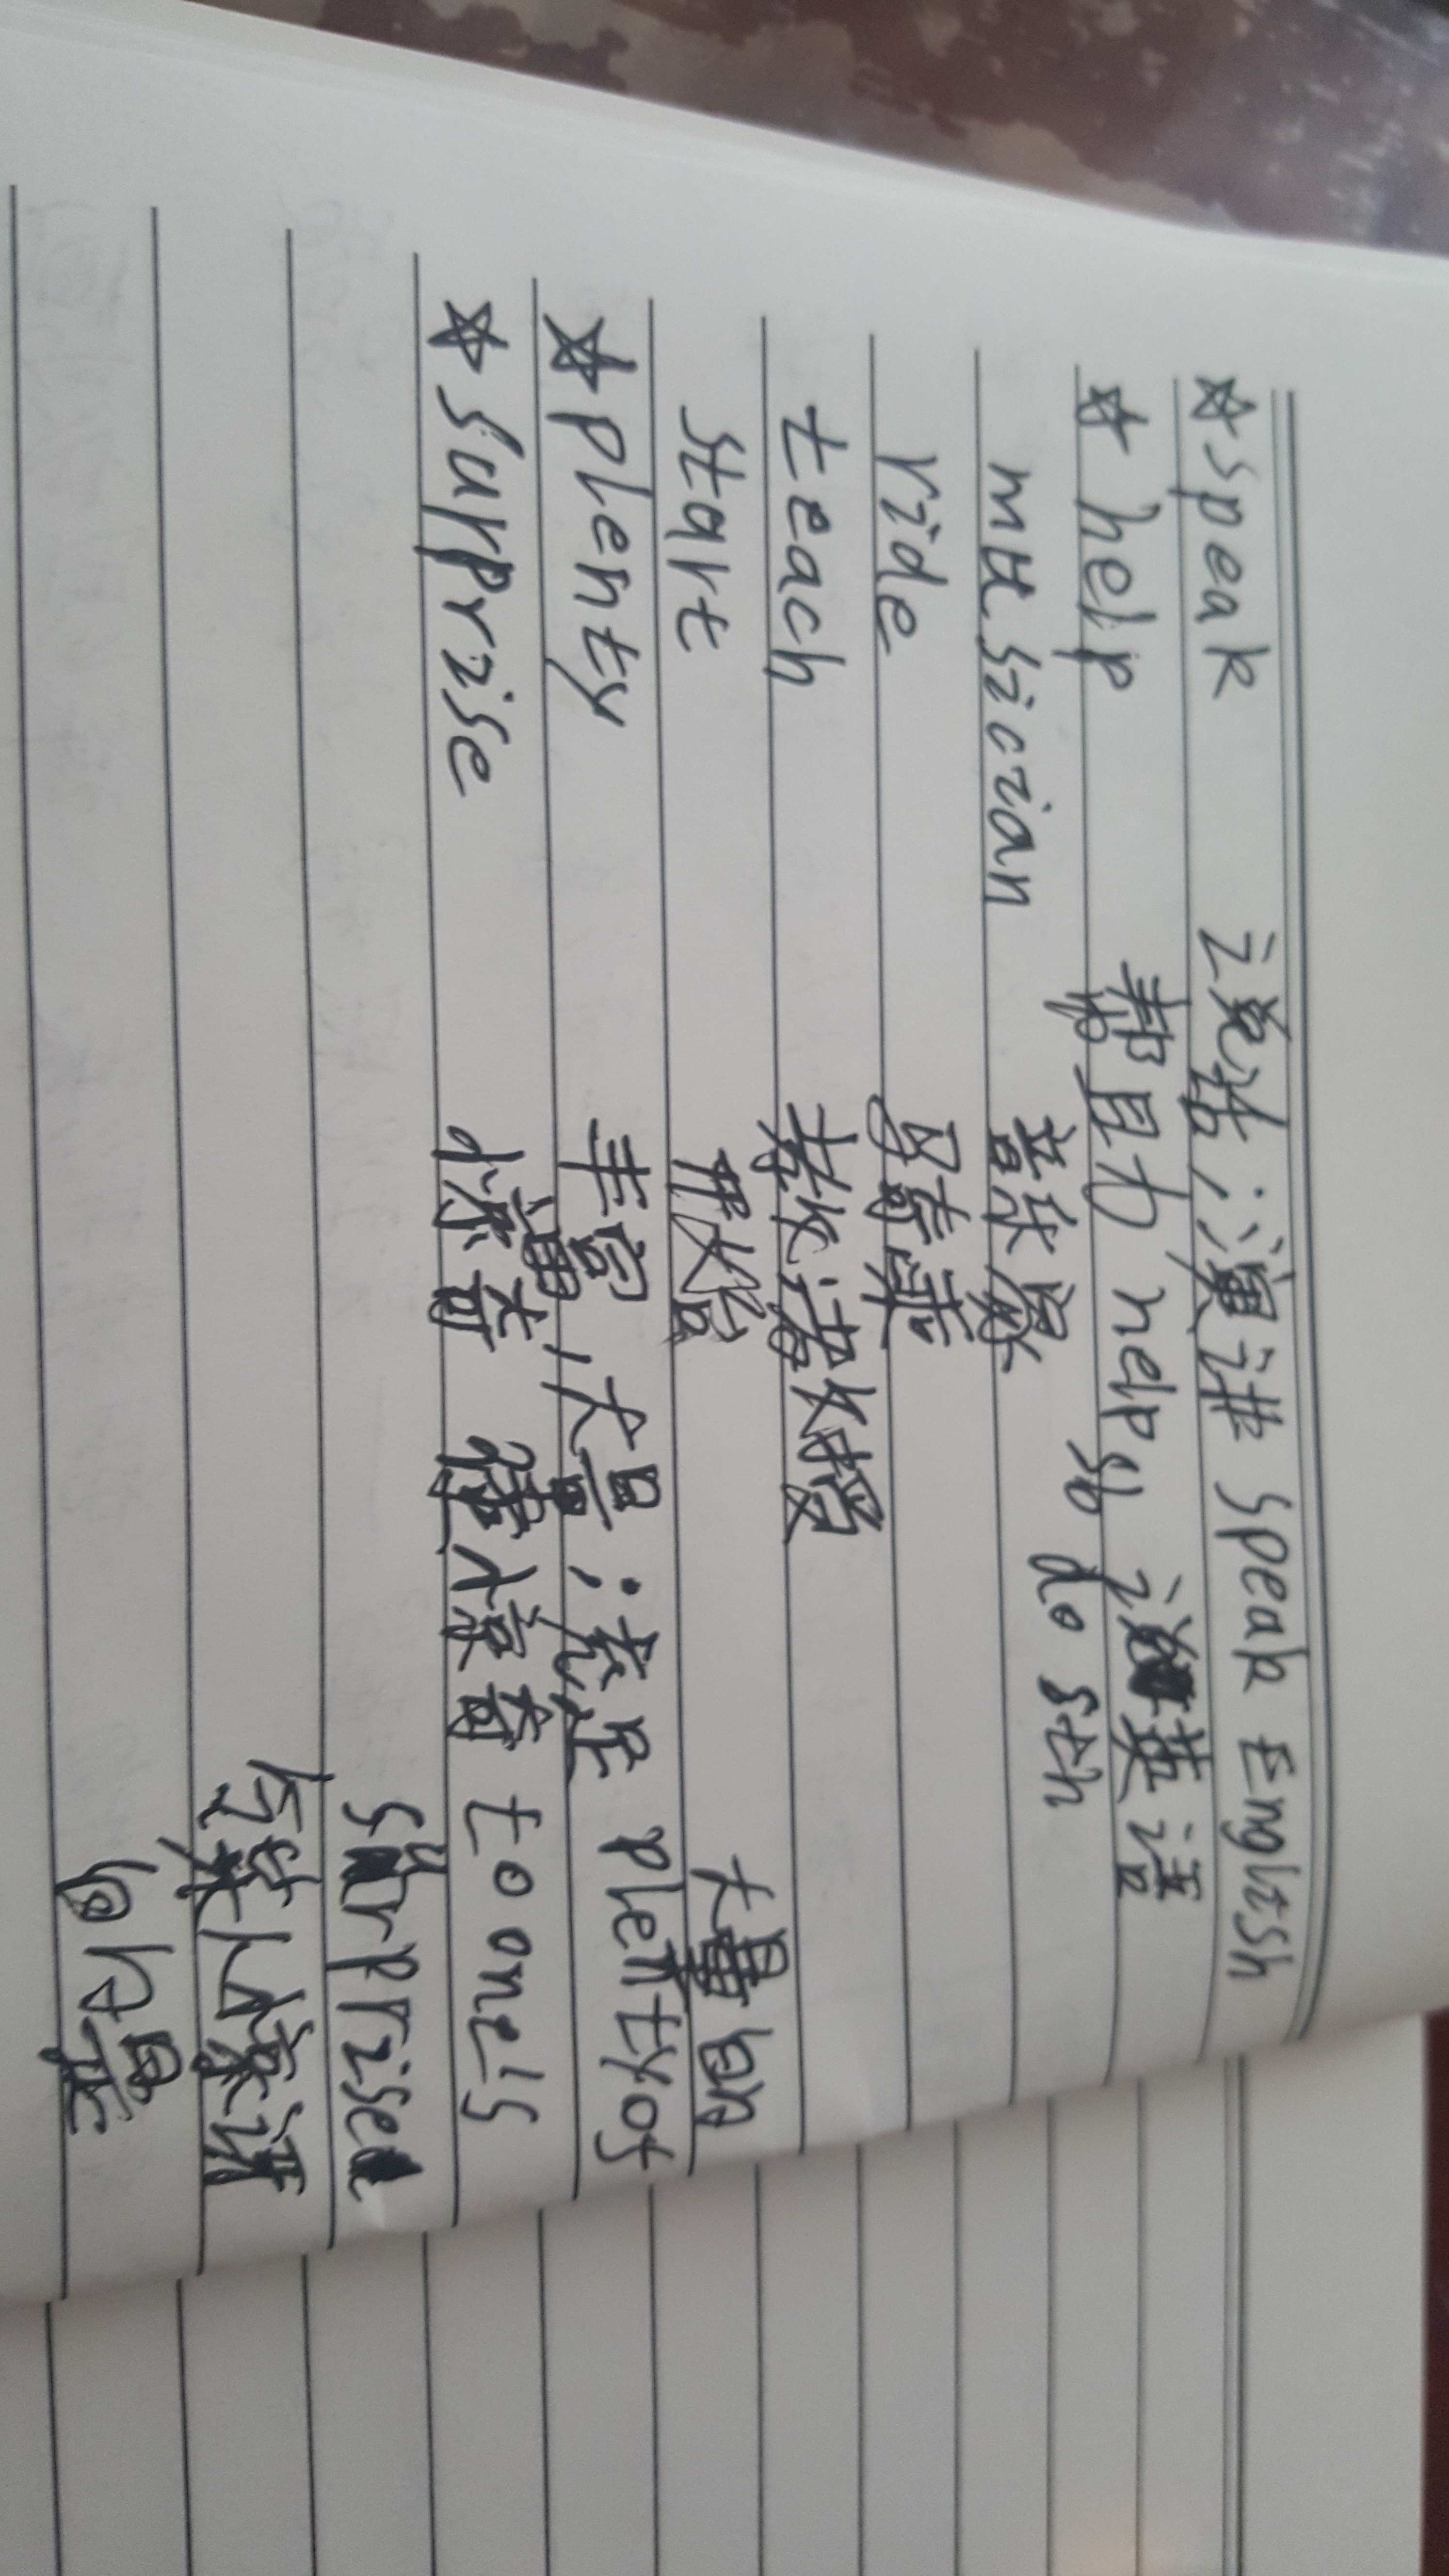 ☆speak 说话；演讲 speak English
☆help 帮助 help sb 说英语
do sth
musician 音乐家
ride 骑乘
teach 教；讲授
start 开始
大量的
☆plenty 丰富，大量；充足 plenty of
☆surprise 惊奇 使惊奇 to one's
surprised
令某人惊讶
的是